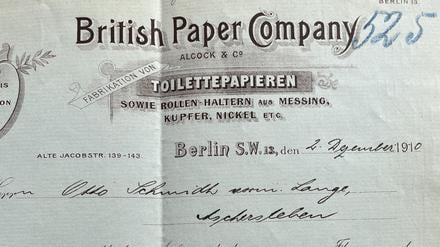 BERLIN 13.
British Paper Company.
525
ALCOCK & Cº
FABRIKATION VON
TOILETTEPAPIEREN
SOWIE ROLLEN-HALTERN AUS MESSING,
KUPFER, NICKEL ETC.
ALTE JACOBSTR. 139-143.
Berlin S.W. 13, den 2. Dezember 1910
Herrn Otto Schmidt vorm. Lange,
Aschersleben